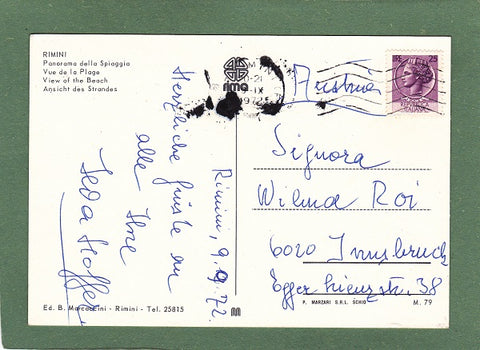 RIMINI
Panorama della Spiaggia
Vue de la Plage
View of the Beach
Ansicht des Strandes
Rimini, 9.9.72
Herzliche Grüße an
alle Ihre
Hoffer
Ed. B. Marcaccini - Rimini - Tel. 25815
rima
Austria
25
Signora
Wilma Roi
6020 Innsbruck
Egger Lienzstr. 38
P. MARZARI S.R.L. SCHIO
M. 79